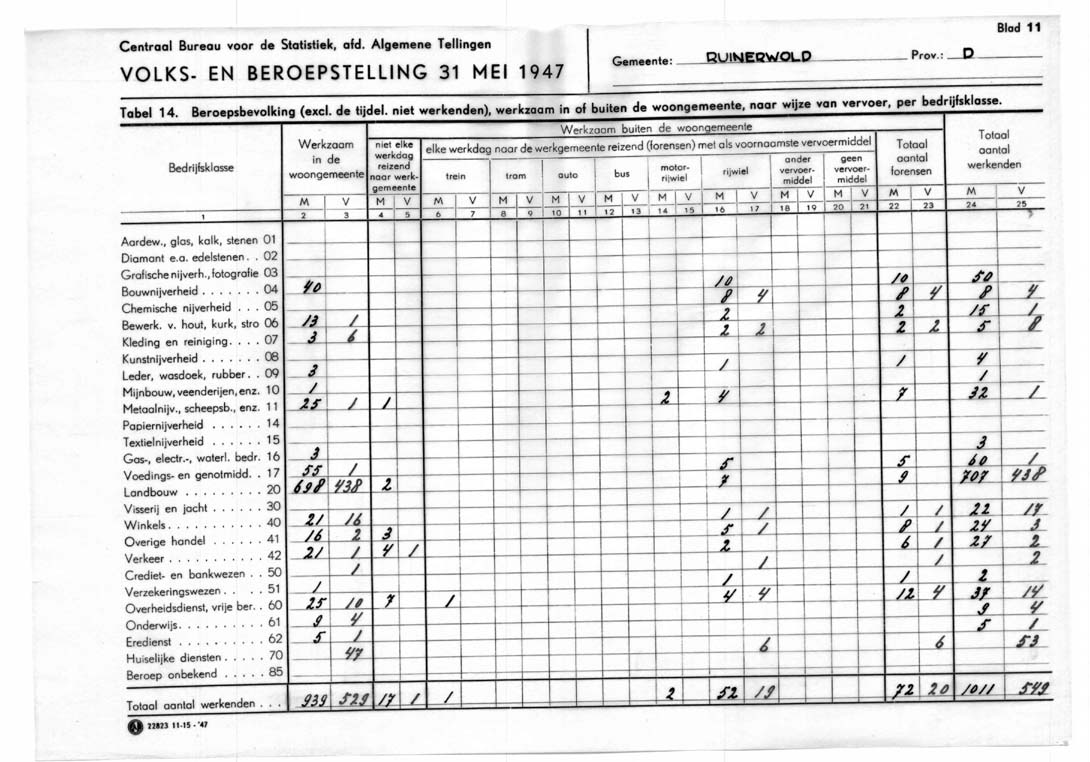 Blad 11
Centraal Bureau voor de Statistiek, afd. Algemene Tellingen
VOLKS- EN BEROEPSTELLING 31 MEI 1947
Gemeente: RUINERWOLD Prov.: D
Tabel 14. Beroepsbevolking (excl. de tijdel. niet werkenden), werkzaam in of buiten de woongemeente, naar wijze van vervoer, per bedrijfsklasse.
Bedrijfsklasse
Werkzaam in de woongemeente
Werkzaam buiten de woongemeente
niet elke werkdag reizend naar werkgemeente
elke werkdag naar de werkgemeente reizend (forensen) met als voornaamste vervoermiddel
trein tram auto bus motor-rijwiel rijwiel ander vervoer-middel geen vervoer-middel
Totaal aantal forensen
Totaal aantal werkenden
M V M V M V M V M V M V M V M V M V M V M V M V
1 2 3 4 5 6 7 8 9 10 11 12 13 14 15 16 17 18 19 20 21 22 23 24 25
Aardew., glas, kalk, stenen 01
Diamant e.a. edelstenen. . 02
Grafische nijverh., fotografie 03
Bouwnijverheid . . . . . . . 04 40 10 10 50
Chemische nijverheid . . . 05 8 4 8 4 8 4
Bewerk. v. hout, kurk, stro 06 13 1 2 2 15 1
Kleding en reiniging. . . . 07 3 6 2 2 2 2 5 8
Kunstnijverheid . . . . . . . 08
Leder, wasdoek, rubber. . 09 3 1 1 4
Mijnbouw, veenderijen, enz. 10 1 1
Metaalnijv., scheepsb., enz. 11 25 1 1 2 4 7 32 1
Papiernijverheid . . . . . . 14
Textielnijverheid . . . . . . 15
Gas-, electr.-, waterl. bedr. 16 3 3
Voedings- en genotmidd. . 17 55 1 5 5 60 1
Landbouw . . . . . . . . . 20 698 438 2 7 9 707 438
Visserij en jacht . . . . . . 30
Winkels . . . . . . . . . . . 40 21 16 1 1 1 1 22 17
Overige handel . . . . . . 41 16 2 3 5 1 8 1 24 3
Verkeer . . . . . . . . . . . 42 21 1 4 1 2 6 1 27 2
Crediet- en bankwezen . . 50 1 1 1 2
Verzekeringswezen . . . . 51 1 1 1 2
Overheidsdienst, vrije ber. . 60 25 10 7 1 4 4 12 4 37 14
Onderwijs. . . . . . . . . . 61 9 4 9 4
Eredienst . . . . . . . . . . 62 5 1 5 1
Huiselijke diensten . . . . . 70 47 6 6 53
Beroep onbekend . . . . . 85
Totaal aantal werkenden . . . 939 529 17 1 1 2 52 19 72 20 1011 549
22823 11-15 - '47